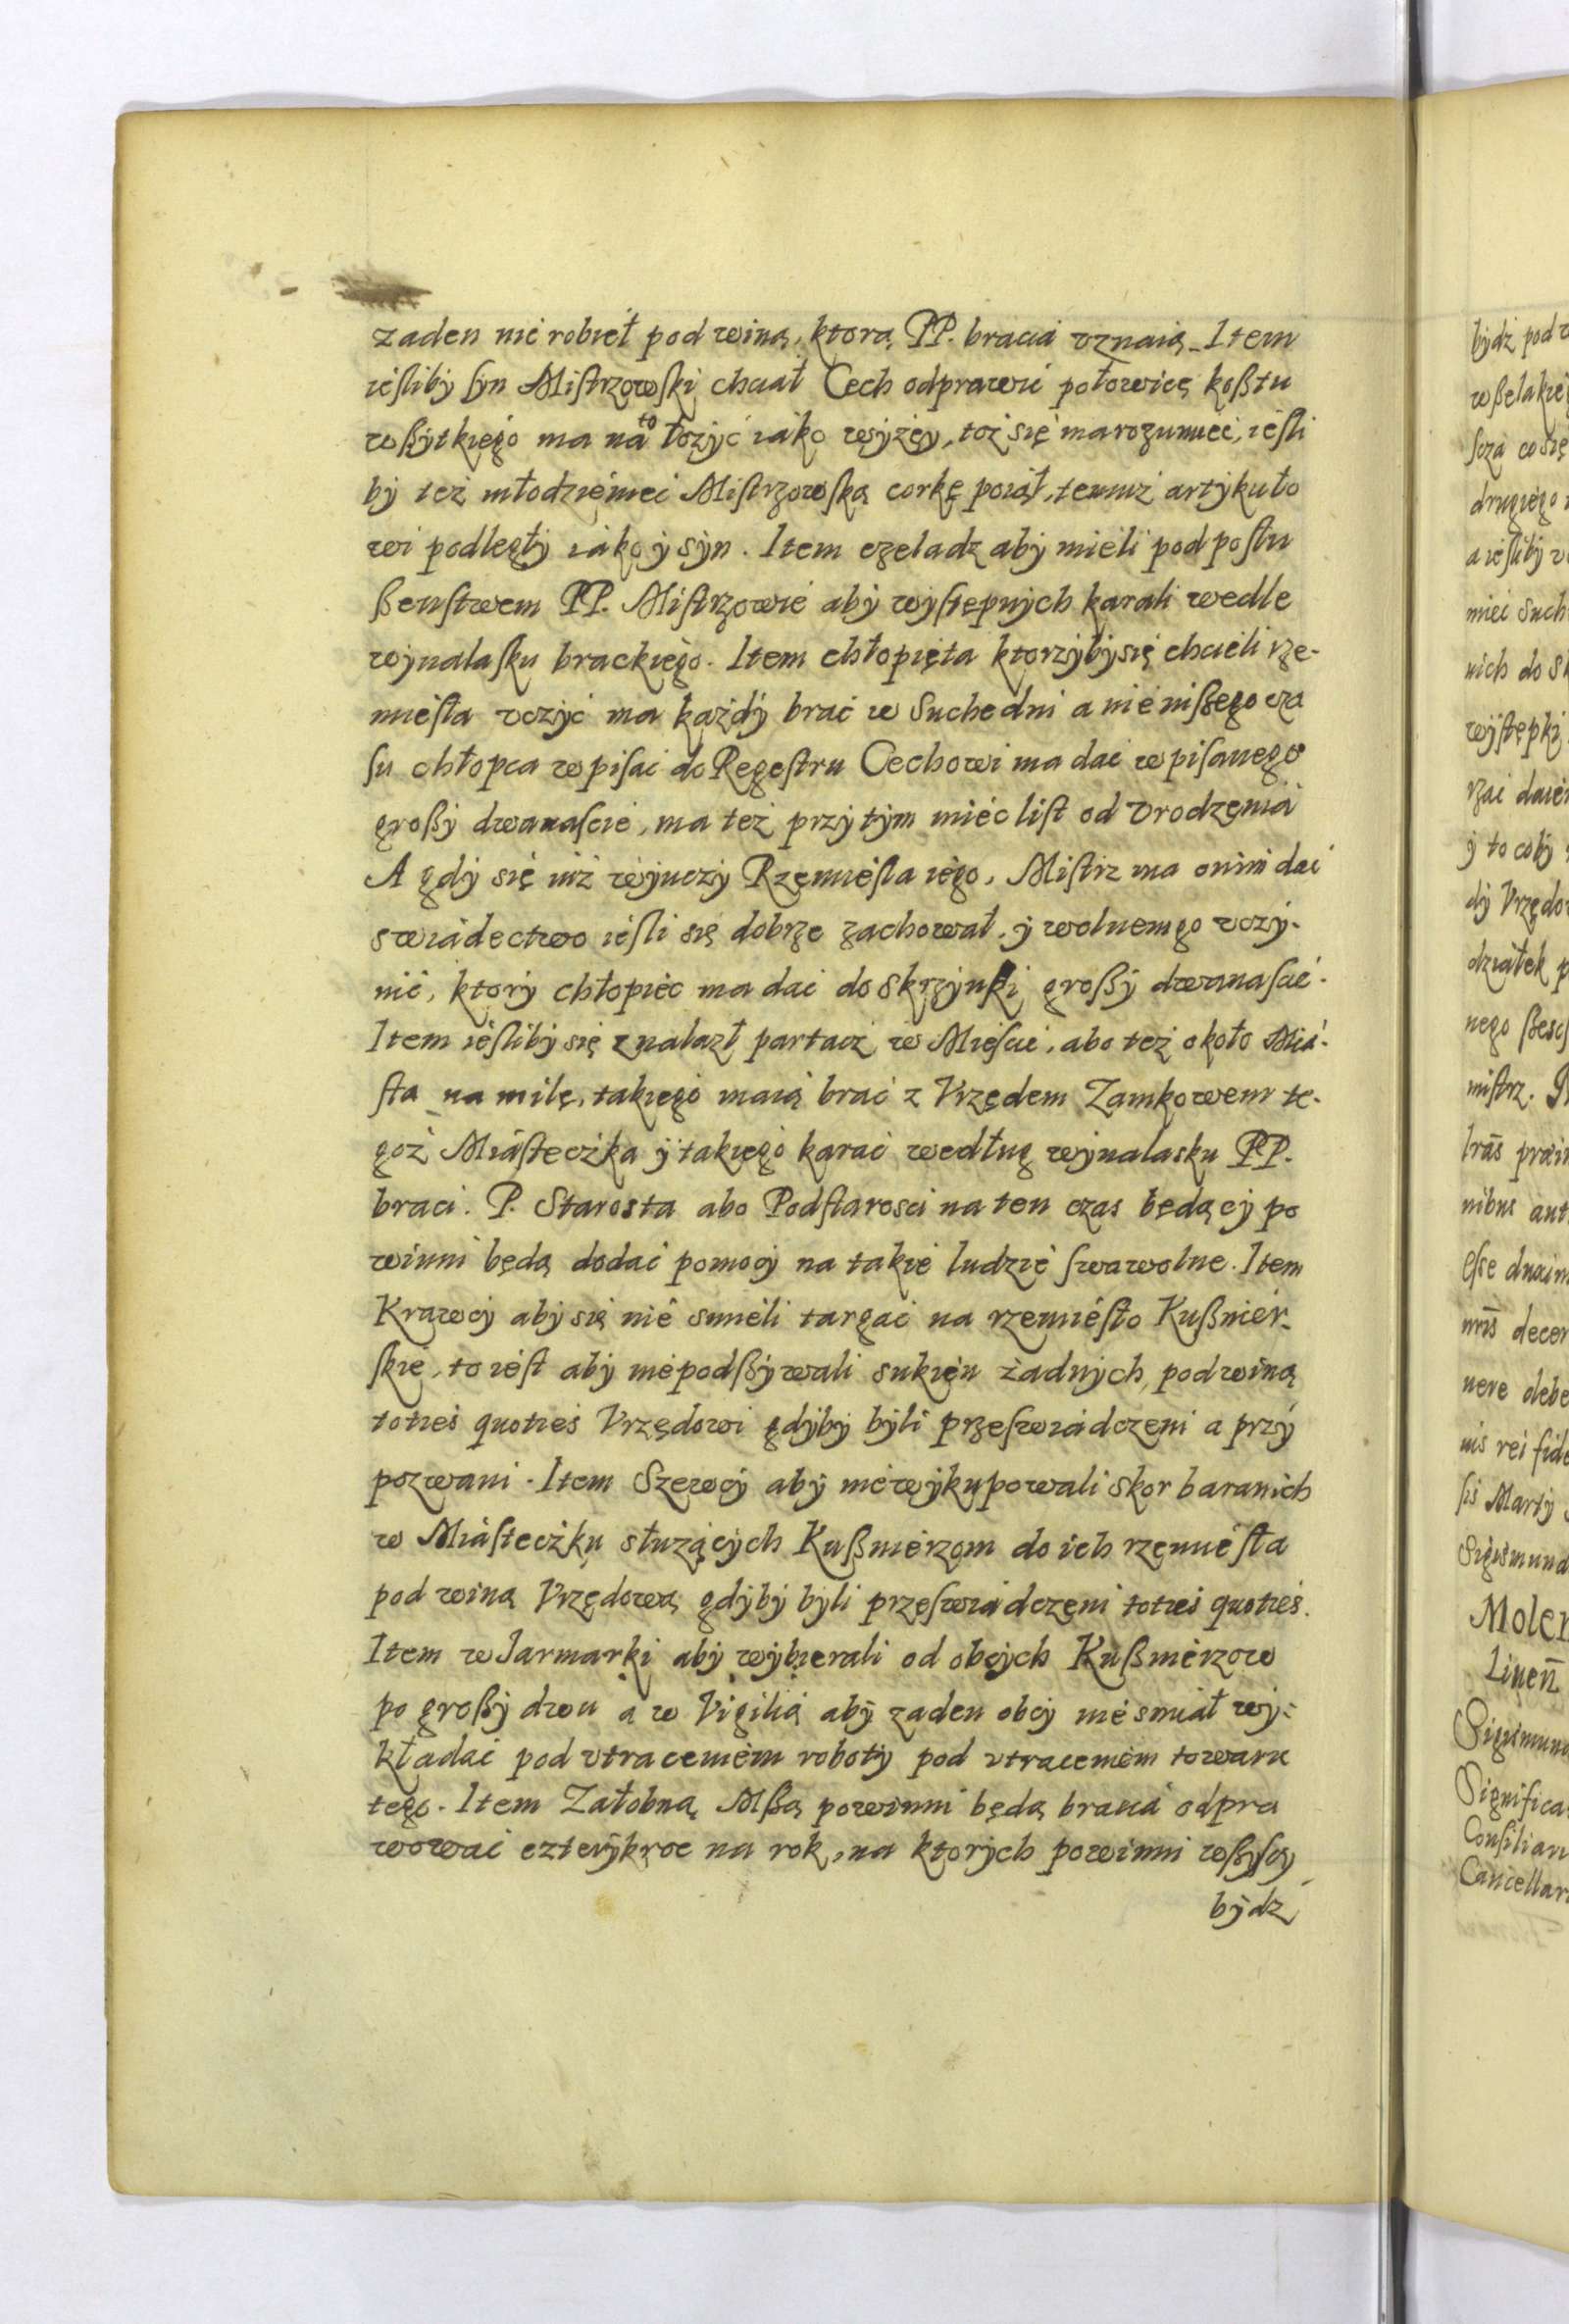 zaden nie robieł pod winą, ktorą PP. bracia vznaią. Item
ieſliby ſyn Miſtrzowſki chciał Cech odprawić połowicę koßtu
wßytkiego ma na to łozyć iako wyżey, toż się ma rozumieć, ieſli
by też młodzieniec Miſtrzowſką corkę poiął, temuż artykuło
wi podległy iako y syn. Item czeladz aby mieli pod poſłu
ßenſtwem PP. Miſtrzowie aby wyſtępnych karali wedle
wynalaſku brackiego. Item chłopięta ktorzyby się chcieli rze-
mieſła vczyć ma każdy brać w Suchedni a nie inßego cza
ſu chłopca wpiſać do Regeſtru Cechowi ma dać wpiſanego
großy dwanaſcie, ma też przytym mieć liſt od Vrodzenia
A gdy się iuż wyuczy Rzemieſla iego, Miſtrz ma onim dać
swiadectwo ieſli się dobrze zachował, y wolnem go vczy-
nić, ktory chłopiec ma dać do skrzynki großy dwanaſcie.
Item ieſliby się znalazł partacz w Mieſcie, abo też około Mia-
ſta na milę, takiego maią brać z Vrzędem Zamkowem te-
goż Miaſteczka y takiego karać według wynalasku PP.
braci. P. Starosta abo Podſtarosci na ten czas będący po
winni będą dodać pomocy na takie ludzie ſwawolne. Item
Krawcy aby się nie smieli targać na rzemieſło Kußnier-
ſkie, to ieſt aby nie podßywali sukien żadnych, pod winą
toties quoties Vrzędowi gdyby byli przeſwiadczeni a przy
pozwani. Item Szewcy aby nie wykupowali skor baranich
w Miaſteczku służących Kußnierzom do ich rzemieſła
pod winą Vrzędową gdyby byli przeſwiadczeni toties quoties.
Item w Jarmarki aby wybierali od obcych Kußnierzow
po großy dwu a w Vigilią aby zaden obcy nie smiał wy-
kładać pod vtraceniem roboty pod vtraceniem towaru
tego. Item Załobną Mßą powinni będą bracia odpra
wować czterykroc na rok, na ktorych powinni wßyſcy
bydz